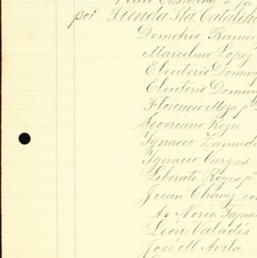 por Tienda Sta Catalina
Demetrio Ramir
Marcelino Lopez
Eleuterio Doming
Eleuterio Doming
Florencio Meza p.
Severiano Rojo
Ignacio Zamudi
Ignacio Vargas
Liberato Reyes p.
Juan Chavez con
Noria Tapia
León Valadés
José M. Avila